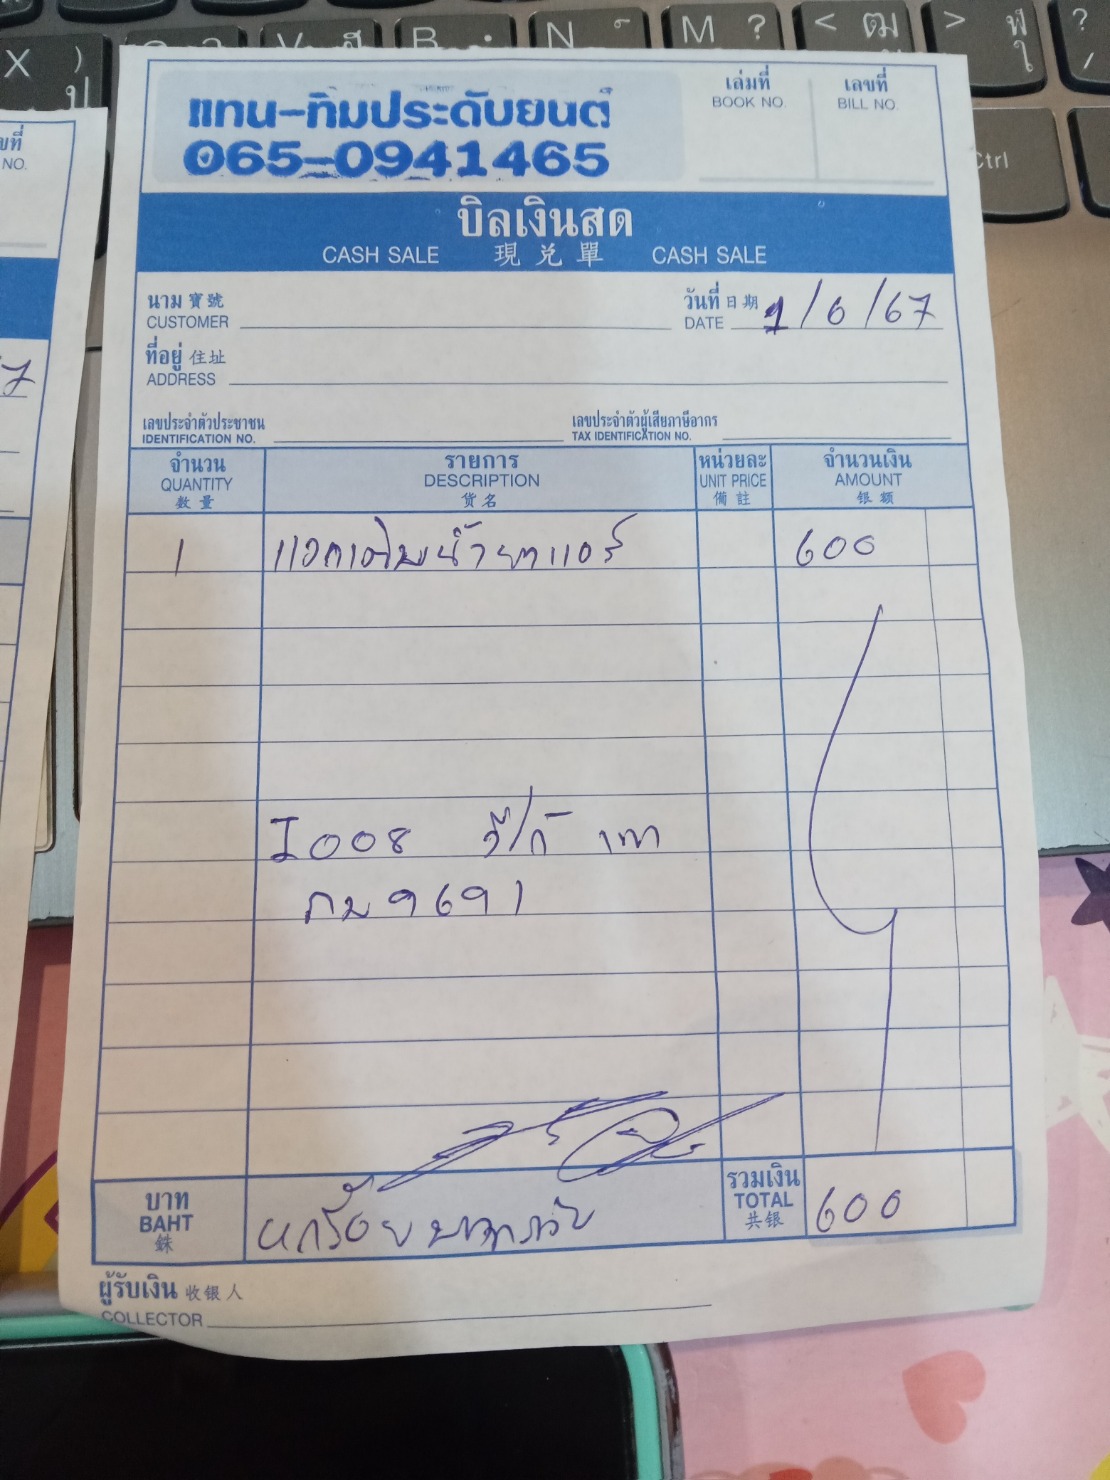 แทน-ทิมประดับยนต์
065-0941465
เล่มที่
BOOK NO.
เลขที่
BILL NO.
บิลเงินสด
CASH SALE 現兑單 CASH SALE
นาม 寶號
CUSTOMER
วันที่ 日期
DATE 1/6/67
ที่อยู่ 住址
ADDRESS
เลขประจำตัวประชาชน
IDENTIFICATION NO.
เลขประจำตัวผู้เสียภาษีอากร
TAX IDENTIFICATION NO.
จำนวน
QUANTITY
数量
รายการ
DESCRIPTION
货名
หน่วยละ
UNIT PRICE
備註
จำนวนเงิน
AMOUNT
银额
1 น้ำยาแอร์ 600
I008 เทา
กม 9691
บาท
BAHT
銖
หกร้อยบาท
รวมเงิน
TOTAL
共银
600
ผู้รับเงิน 收银人
COLLECTOR
X
B
N
M ?
< ฒ
>
Ctrl
NO.